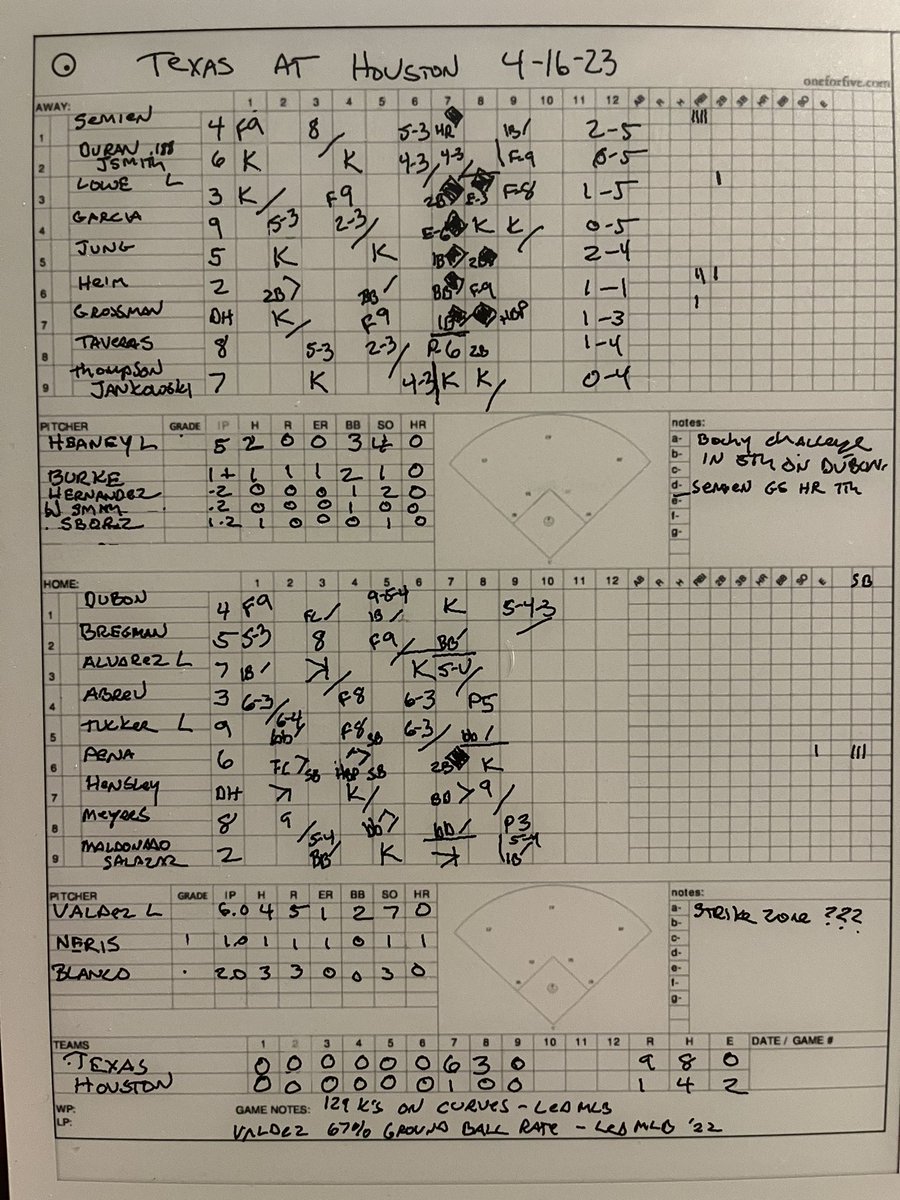 TEXAS AT HOUSTON 4-16-23
oneforfive.com
AWAY: 1 2 3 4 5 6 7 8 9 10 11 12
1 SEMIEN 4 F9 8 5-3 HR 1B 2-5
2 DURAN JSMITH 6 K K 4-3 4-3 F-9 0-5
3 LOWE L 3 K F9 2B E-5 F-8 1-5
4 GARCIA 9 5-3 2-3 E-6 K K 0-5
5 JUNG 5 K K 1B 2B 2-4
6 HEIM 2 2B BB BB F9 1-1
7 GROSSMAN DH K F9 1B HBP 1-3
8 TAVERAS 8 5-3 2-3 P6 2B 1-4
9 THOMPSON JANKOWSKI 7 K 4-3 K K 0-4
PITCHER GRADE IP H R ER BB SO HR
HEANEY L 5 2 0 0 3 4 0
BURKE 1+ 1 1 1 2 1 0
HERNANDEZ .2 0 0 0 1 2 0
W SMITH .2 0 0 0 1 0 0
SBORZ 1.2 1 0 0 0 1 0
notes:
a- Bochy challenge
b- IN 5TH ON DUBON
c-
d- SEMIEN GS HR 7TH
e-
f-
g-
HOME: 1 2 3 4 5 6 7 8 9 10 11 12 SB
1 DUBON 4 F9 FC 9-5-4 1B K 5-4-3
2 BREGMAN 5 5-3 8 F9 BB
3 ALVAREZ L 7 1B K K 5-U
4 ABREU 3 6-3 F8 6-3 P5
5 TUCKER L 9 6-4 bb F8 6-3 bb
6 PENA 6 FC SB HBP SB 2B K
7 HENSLEY DH K BB 9
8 MEYERS 8 9 5-4 bb bb P3
9 MALDONADO SALAZAR 2 BB K 5-4 1B
PITCHER GRADE IP H R ER BB SO HR
VALDEZ L 6.0 4 5 1 2 7 0
NERIS 1.0 1 1 1 0 1 1
BLANCO 2.0 3 3 0 0 3 0
notes:
a- STRIKE ZONE ???
b-
c-
d-
e-
f-
g-
TEAMS 1 2 3 4 5 6 7 8 9 10 11 12 R H E DATE / GAME #
TEXAS 0 0 0 0 0 0 6 3 0 9 8 0
HOUSTON 0 0 0 0 0 0 1 0 0 1 4 2
WP: GAME NOTES: 129 K'S ON CURVES - LED MLB
LP: VALDEZ 67% GROUND BALL RATE - LED MLB '22